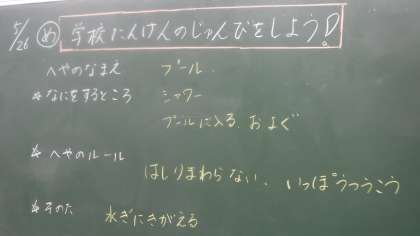 5/26 め 学校たんけんのじゅんびをしよう!
へやのなまえ プール
*なにをするところ シャワー
プールに入る、およぐ
*へやのルール
はしりまわらない、いっぽうつうこう
*そのた 水ぎにきがえる